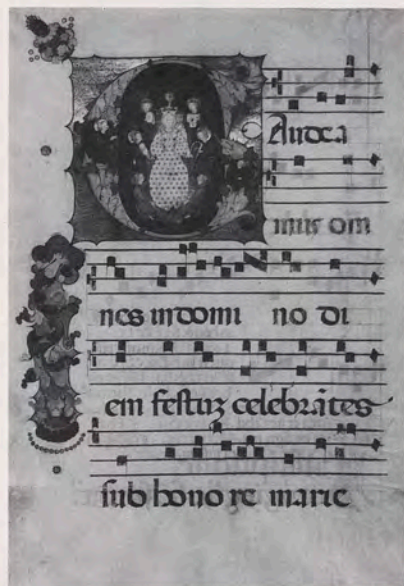 Gaudea
mus om
nes in domi no di
em festuz celebrãtes
sub hono re marie